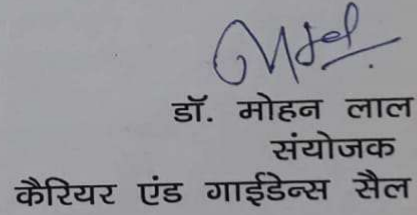 डॉ. मोहन लाल
संयोजक
कैरियर एंड गाईडेन्स सैल